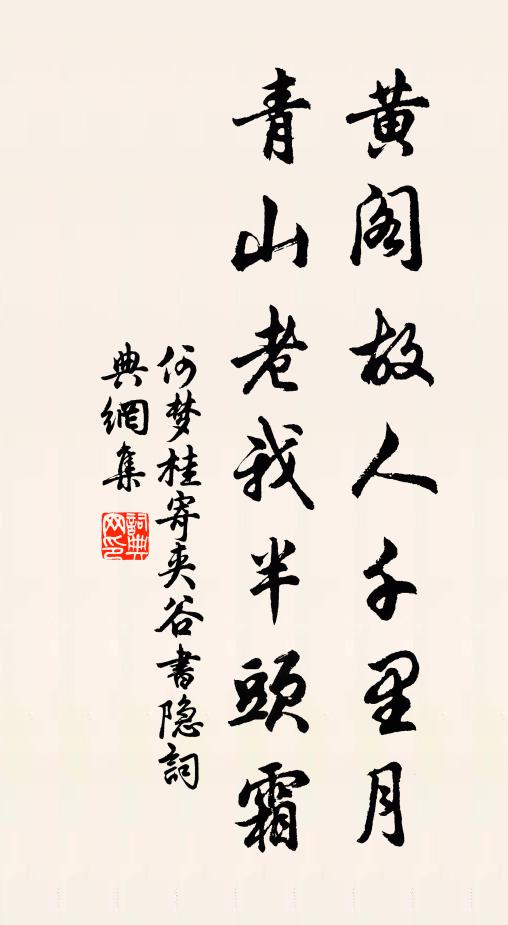 黄阁故人千里月
青山老我半頭霜
何梦桂寄夾谷書隐詞
典網集
詞典
网印